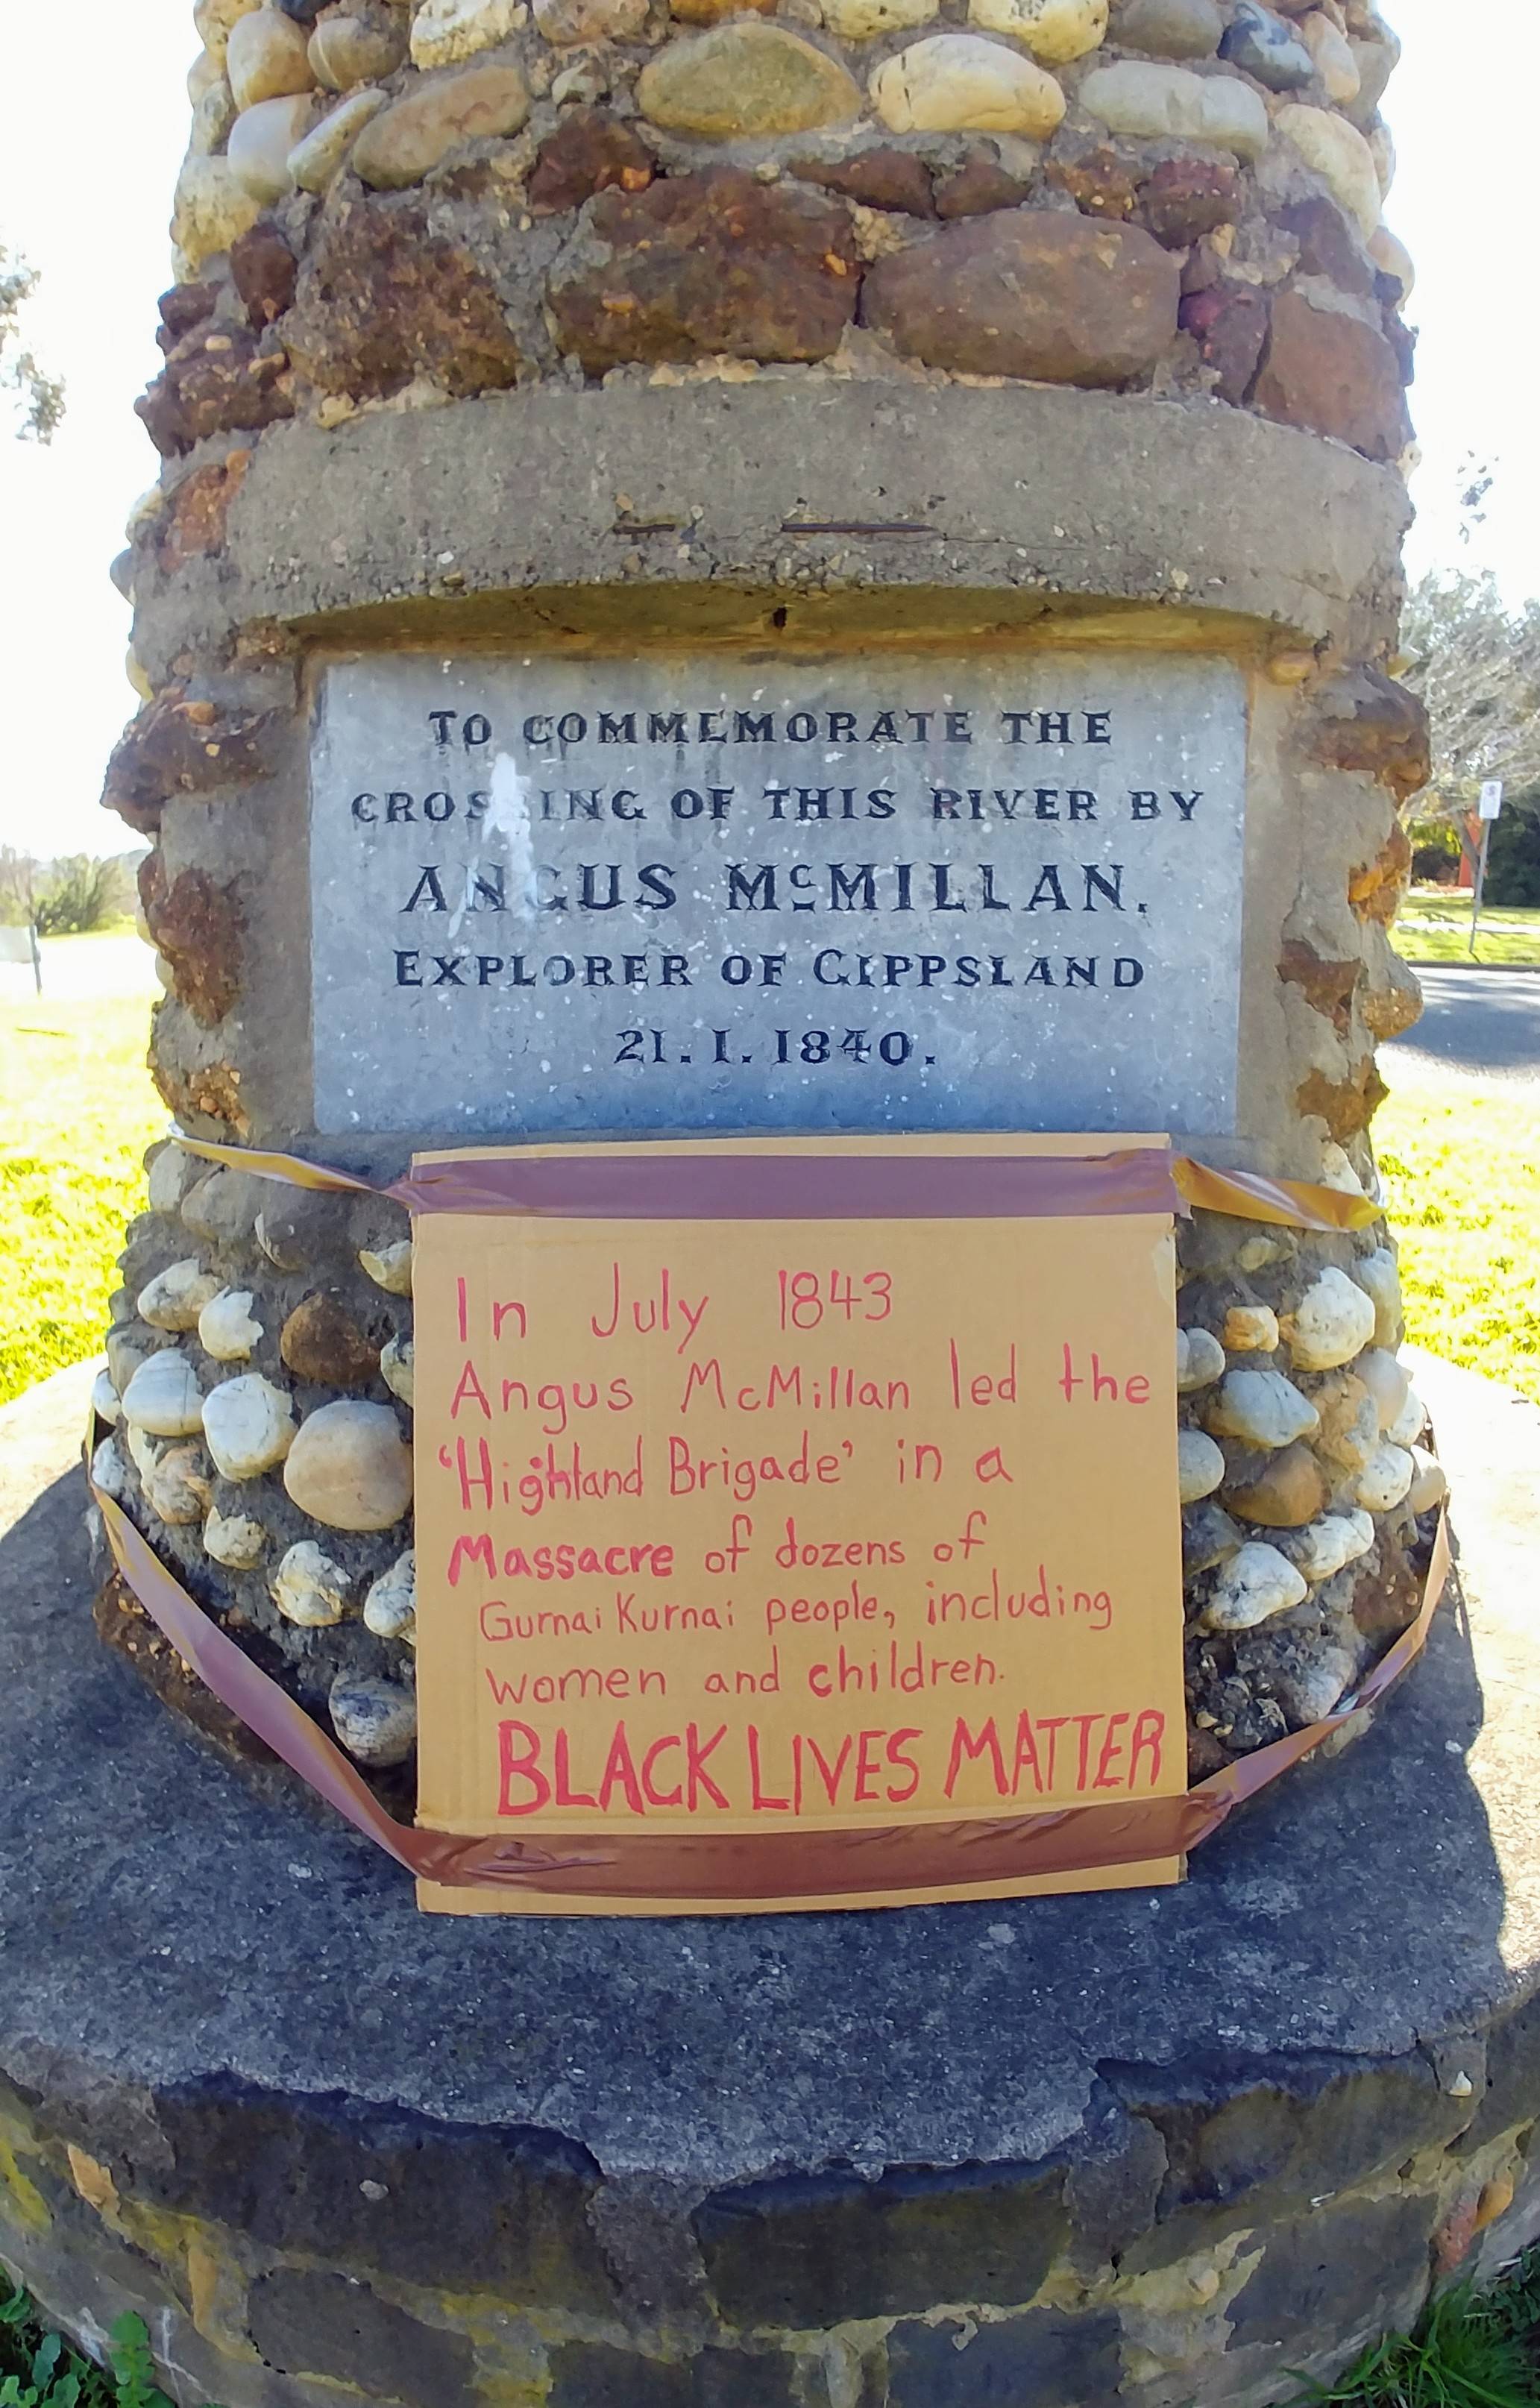 TO COMMEMORATE THE
CROSSING OF THIS RIVER BY
ANGUS McMILLAN.
EXPLORER OF GIPPSLAND
21.1.1840.
In July 1843
Angus McMillan led the
'Highland Brigade' in a
Massacre of dozens of
Gurnai Kurnai people, including
women and children.
BLACK LIVES MATTER